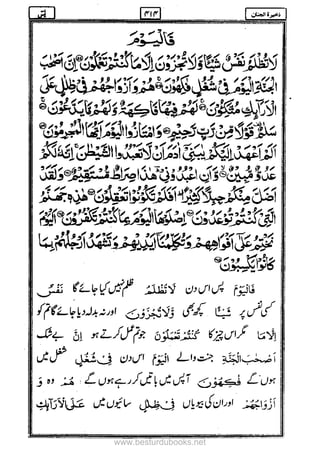 ذخیرة الجنان
۴۱۴
یٰسٓ
فَالْیَوْمَ
لَا تُظْلَمُ نَفْسٌ شَیْئًا وَّلَا تُجْزَوْنَ اِلَّا مَا كُنْتُمْ تَعْمَلُوْنَ اِنَّ اَصْحٰبَ
الْجَنَّةِ الْیَوْمَ فِیْ شُغُلٍ فٰكِهُوْنَ هُمْ وَاَزْوَاجُهُمْ فِیْ ظِلٰلٍ عَلَی
الْاَرَآئِكِ مُتَّكِـُٔوْنَ لَهُمْ فِیْهَا فَاكِهَةٌ وَّلَهُمْ مَّا یَدَّعُوْنَ
سَلٰمٌ قَوْلًا مِّنْ رَّبٍّ رَّحِیْمٍ وَامْتَازُوا الْیَوْمَ اَیُّهَا الْمُجْرِمُوْنَ
اَلَمْ اَعْهَدْ اِلَیْكُمْ یٰبَنِیْٓ اٰدَمَ اَنْ لَّا تَعْبُدُوا الشَّیْطٰنَ اِنَّهٗ لَكُمْ
عَدُوٌّ مُّبِیْنٌ وَّاَنِ اعْبُدُوْنِیْ هٰذَا صِرَاطٌ مُّسْتَقِیْمٌ وَلَقَدْ
اَضَلَّ مِنْكُمْ جِبِلًّا كَثِیْرًا اَفَلَمْ تَكُوْنُوْا تَعْقِلُوْنَ هٰذِهٖ جَهَنَّمُ
الَّتِیْ كُنْتُمْ تُوْعَدُوْنَ اِصْلَوْهَا الْیَوْمَ بِمَا كُنْتُمْ تَكْفُرُوْنَ اَلْیَوْمَ
نَخْتِمُ عَلٰٓی اَفْوَاهِهِمْ وَتُكَلِّمُنَآ اَیْدِیْهِمْ وَتَشْهَدُ اَرْجُلُهُمْ بِمَا
كَانُوْا یَكْسِبُوْنَ
فَالْیَوْمَ پس اس دن لَا تُظْلَمُ ظلم نہیں کیا جائے گا نَفْسٌ
کسی نفس پر شَیْئًا کچھ بھی وَّلَا تُجْزَوْنَ اور نہ بدلہ دیا جائے گا تم کو
اِلَّا مَا مگر اس چیز کا كُنْتُمْ تَعْمَلُوْنَ جو تم عمل کرتے ہو اِنَّ بے شک
اَصْحٰبَ الْجَنَّةِ جنت والے الْیَوْمَ اس دن فِیْ شُغُلٍ شغل میں
ہوں گے فٰكِهُوْنَ آپس میں باتیں کر رہے ہوں گے هُمْ وہ وَ
اَزْوَاجُهُمْ اور ان کی بیویاں فِیْ ظِلٰلٍ سائیوں میں عَلَی الْاَرَآئِكِ
www.besturdubooks.net